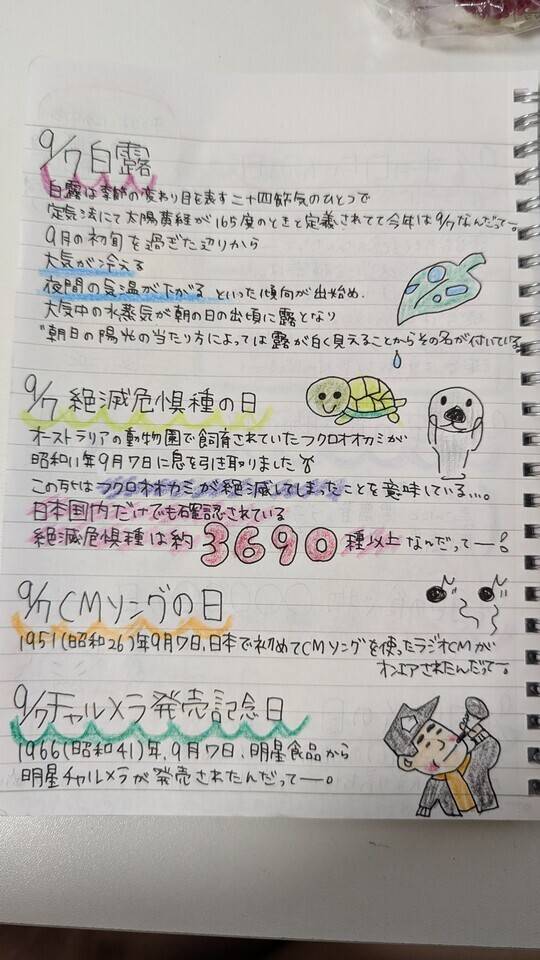 9/7 白露
白露は季節の変わり目を表す二十四節気のひとつで
定気法にて太陽黄経が165度のときと定義されてて今年は9/7なんだってー。
9月の初旬を過ぎた辺りから
大気が冷える
夜間の気温が下がる といった傾向が出始め、
大気中の水蒸気が朝の日の出頃に露となり
朝日の陽光の当たり方によっては露が白く見えることからその名が付いている
9/7 絶滅危惧種の日
オーストラリアの動物園で飼育されていたフクロオオカミが
昭和11年9月7日に息を引き取りました
この死はフクロオオカミが絶滅してしまったことを意味している…。
日本国内だけでも確認されている
絶滅危惧種は約3690種以上なんだってー!
9/7 CMソングの日
1951(昭和26)年9月7日、日本で初めてCMソングを使ったラジオCMが
オンエアされたんだってー。
9/7 チャルメラ発売記念日
1966(昭和41)年、9月7日、明星食品から
明星チャルメラが発売されたんだってー。